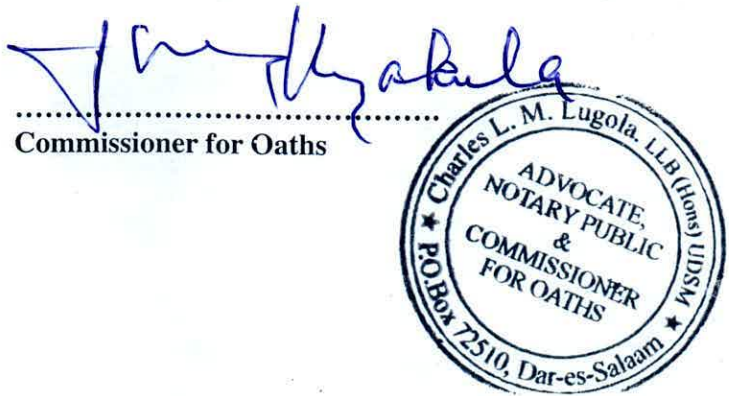 ..........................................
Commissioner for Oaths
Charles L. M. Lugola. LLB (Hons) UDSM
★ P.O.Box 72510, Dar-es-Salaam ★
ADVOCATE,
NOTARY PUBLIC
&
COMMISSIONER
FOR OATHS